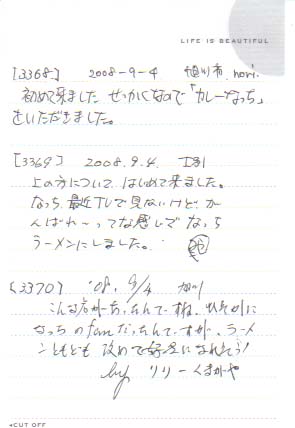 LIFE IS BEAUTIFUL
[3368] 2008-9-4 旭川市 nori.
初めて来ました せっかくなので「カレーなっち」
をいただきました。
[3369] 2008.9.4.
上の方につづいて、はじめて来ました。
なっち、最近TVで見ないけど、が
んばれ〜ってな感じで なっち
ラーメンにしました。
(3370) '08, 9/4
こんな店があったんですね。ひそかに
なっちのfanだったんですが、ラーメ
ンともども 改めて好きになれそう!
by リリーくまがや
◂CUT OFF